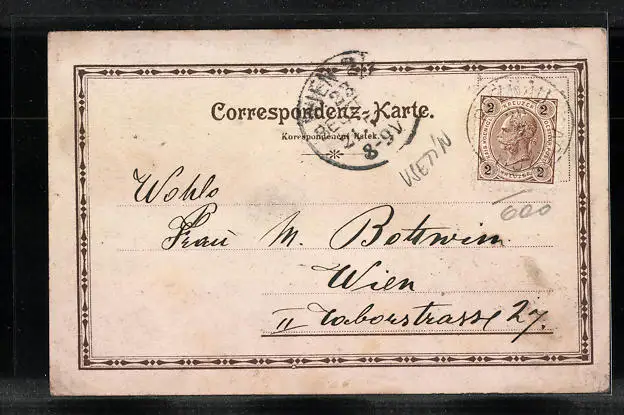 Correspondenz-Karte.
Korespondenční lístek.
WIEN 2/1
8-9V
2 KREUZER 2
2 2
VSETÍN
600
Wohlg
Frau M. Bottwin
Wien
II Taborstrasse 27.